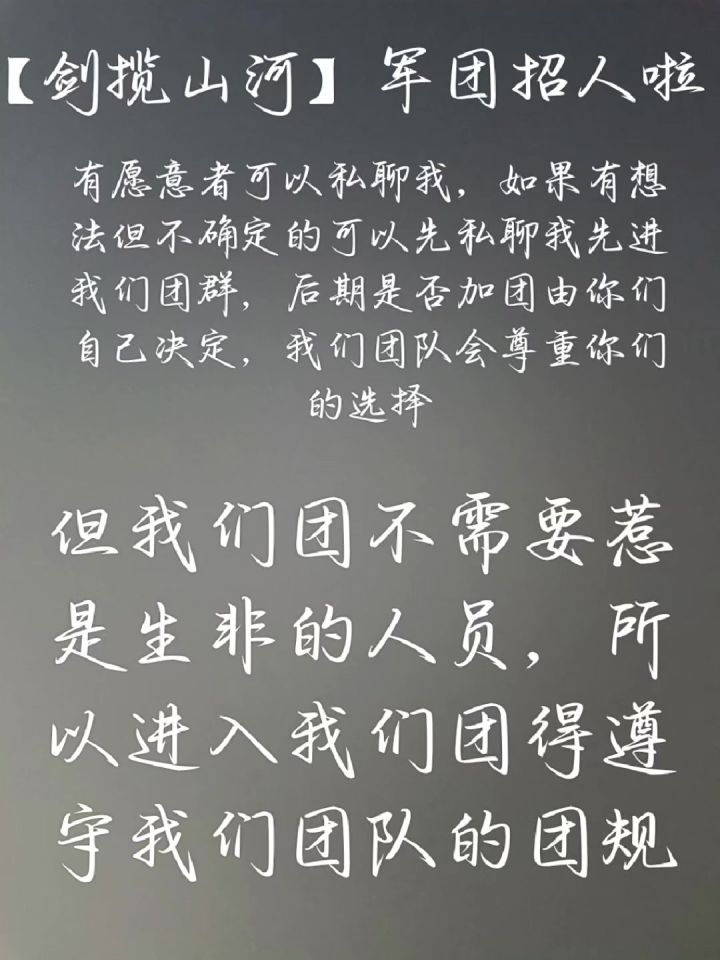 【剑揽山河】军团招人啦
有愿意者可以私聊我，如果有想
法但不确定的可以先私聊我先进
我们团群，后期是否加团由你们
自己决定，我们团队会尊重你们
的选择
但我们团不需要惹
是生非的人员，所
以进入我们团得遵
守我们团队的团规